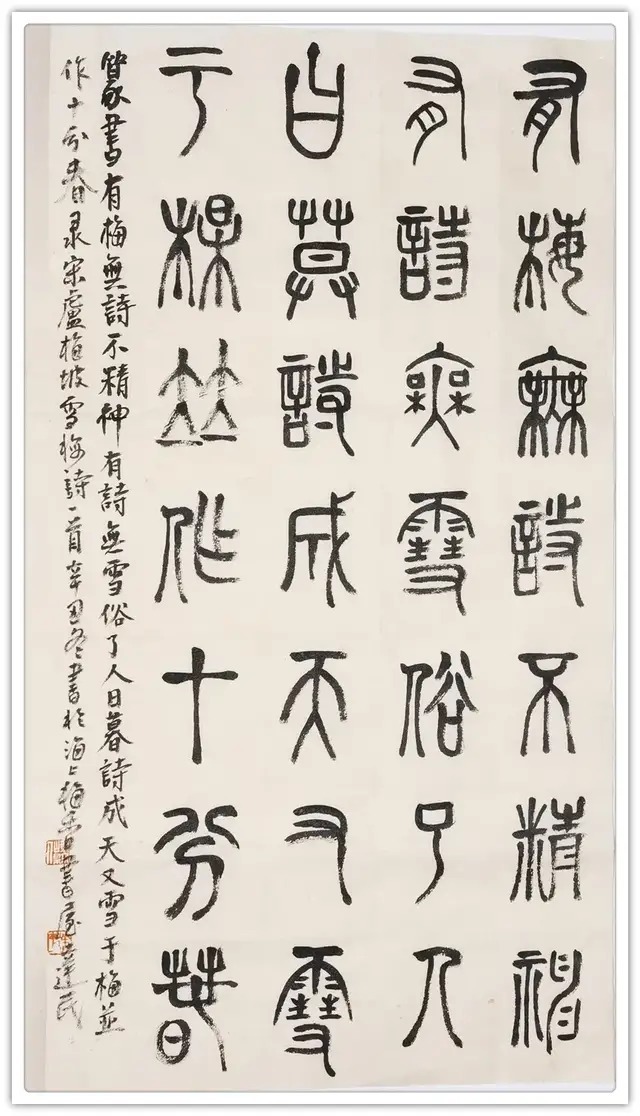 有梅無詩不精神
有詩無雪俗了人
日暮詩成天又雪
于楳竝作十分春
篆書有梅無詩不精神有詩無雪俗了人日暮詩成天又雪于梅並
作十分春录宋盧梅坡雪梅詩一首辛丑冬書於海上梅香書屋達民